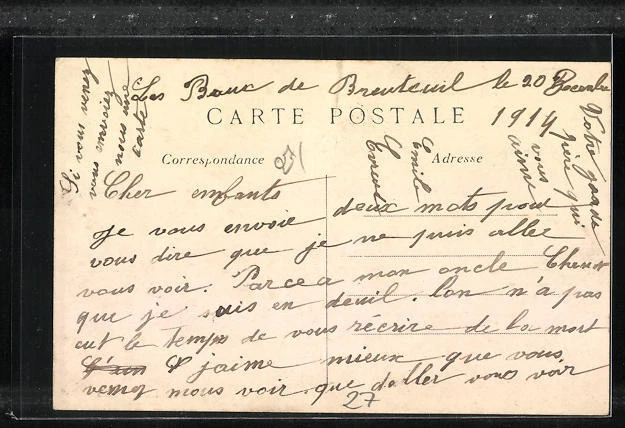 Les Baux de Breuteuil le 20 Decembre
1914
CARTE POSTALE
Correspondance
Adresse
27
Cher enfants
Je vous envoie deux mots pour
vous dire que je ne puis allee
vous voir. Parce a mon oncle
que je suis en deuil. lon n'a pas
eut le temps de vous récrire de la mort
S jaime mieux que vous
venez nous voir que daller vous voir
27
Si vous
vous
carte
Emile
Votre
père qui
vous
aime